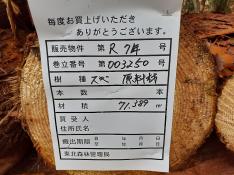 毎度お買上げいただき
ありがとうございます。
販売物件 第 R 7年 号
巻立番号 第 003250 号
樹種 スギ 原料材
本数 本
材積 71.389 m³
買受人
住所氏名
搬出期限 年 月 日
東北森林管理局